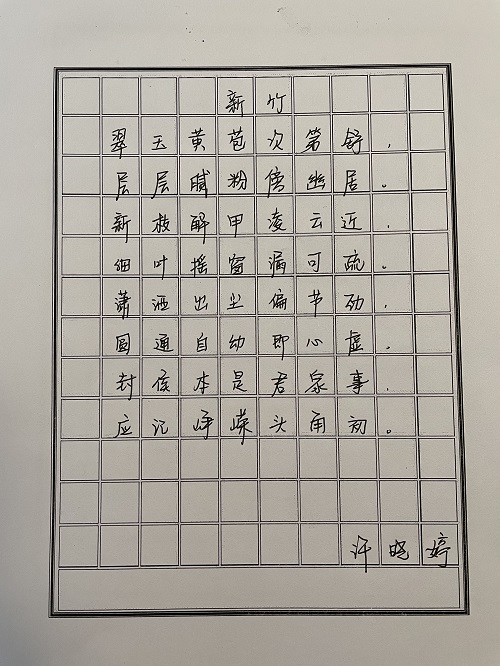 新竹
翠玉黄苞次第舒，
层层腻粉傍幽居。
新救解甲凌云近，
细叶摇窗漏可疏。
潇洒出尘偏节劲，
圆通自幼即心虚。
封侯本是君家事，
应记峥嵘头角初。
许晓婷